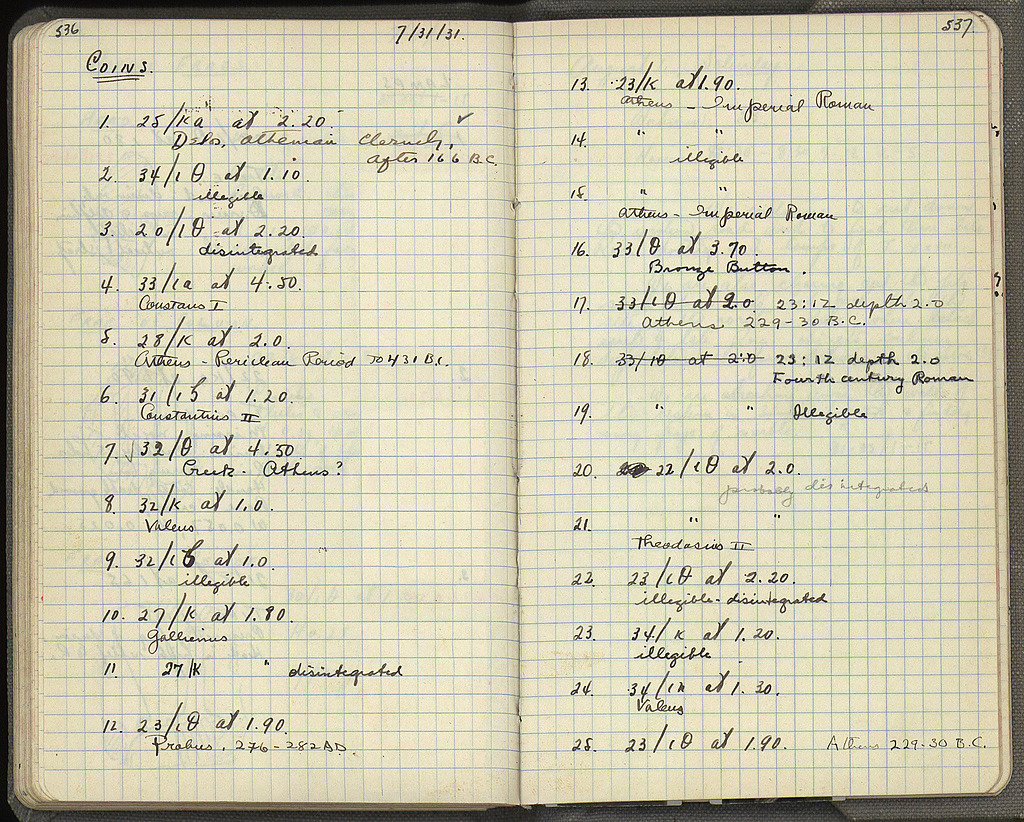 536
7/31/31.
COINS.
1. 25/Ka at 2.20. ✓
Delos, Athenian Cleruchy,
after 166 B.C.
2. 34/ιθ at 1.10.
illegible
3. 20/ιθ at 2.20
disintegrated
4. 33/ιa at 4.50.
Constans I
5. 28/K at 2.0.
Athens - Periclean Period TO 431 B.C.
6. 31/ις at 1.20.
Constantius II
7. √ 32/θ at 4.50
Greek - Athens?
8. 32/K at 1.0.
Valens
9. 32/ις at 1.0.
illegible
10. 27/K at 1.80.
Gallienus
11. 27/K " disintegrated
12. 23/ιθ at 1.90.
Probus, 276-282 A.D.
537
13. 23/K at 1.90.
Athens - Imperial Roman
14. " "
illegible
15. " "
Athens - Imperial Roman
16. 33/θ at 3.70.
Bronze Button.
17. 33/ιθ at 2.0 23:12 depth 2.0
Athens 229-30 B.C.
18. 33/ιθ at 2.0 23:12 depth 2.0
Fourth century Roman
19. " " Illegible
20. 22/ιθ at 2.0.
probably disintegrated
21. " "
Theodosius II
22. 23/ιθ at 2.20.
illegible - disintegrated
23. 34/K at 1.20.
illegible
24. 34/ιη at 1.30.
Valens
25. 23/ιθ at 1.90. Athens 229-30 B.C.